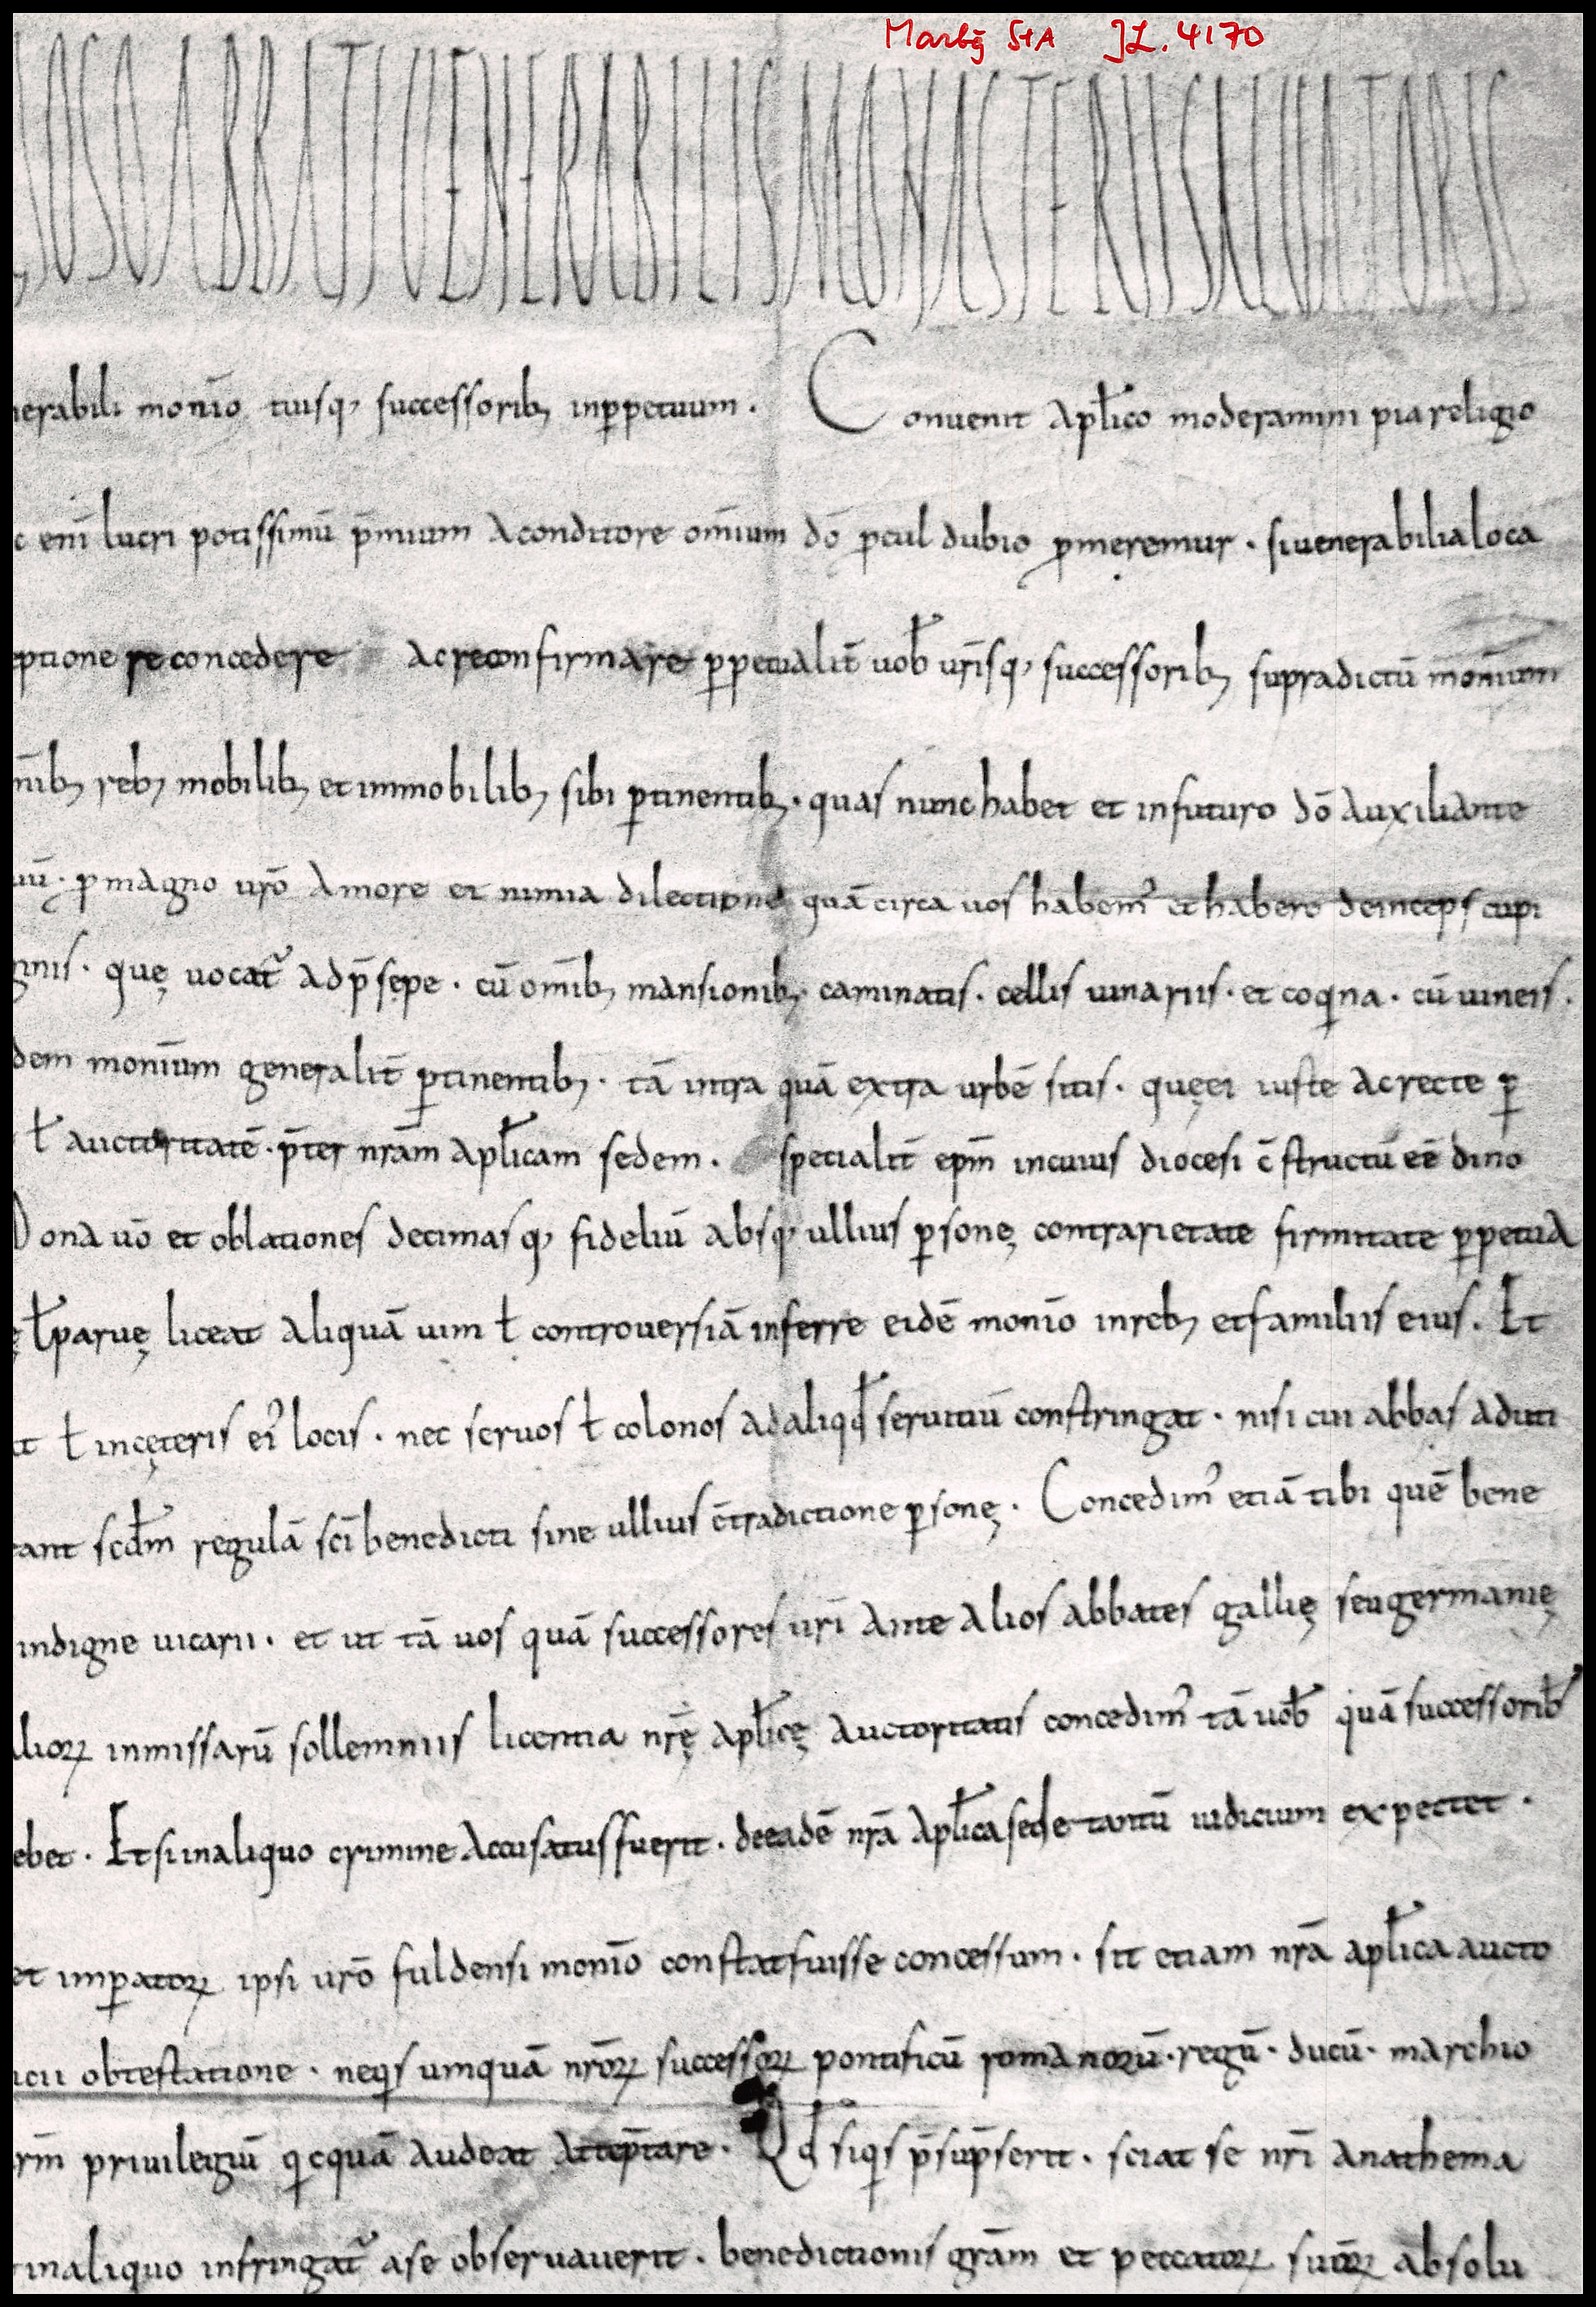 Marbg StA JL. 4170
ROSO ABBATI VENERABILIS MONASTERII SALVATORIS
nerabili monīo tuisq; successorib; inppetuum. Conuenit aplico moderamini pia religio
c enī lucri potissimū p̄mium a conditore om̄ium dō pcul dubio pmeremur. si uenerabilia loca
eptione re concedere ac reconfirmare ppetualit̄ uob ur̄isq; successorib; supradictū monīum
nib; reb; mobilib; et immobilib; sibi ptinentib;. quas nunc habet et in futuro dō auxiliante
uū. p magno urō amore et nimia dilectione quā circa uos habem' et habere deinceps cupi
gnis. quę uocat̄ ad p̄sepe. cū om̄ib; mansionib;. caminatis. cellis uinariis. et coqina. cū uineis.
dem monīum generalit̄ ptinentib;. tā intra quā extra urbē sitis. quę ei iuste ac recte p
ł auctoritatē. p̄ter nr̄am aplicam sedem. specialit̄ epm̄ in cuius diocesi c̄structū eē dino
Dona uō et oblationes decimasq; fideliū absq; ullius psonę contrarietate firmitate ppetua
ę ł paruę liceat aliquā uim ł controuersiā inferre eidē monīo in reb; et familiis eius. Et
it ł in cęteris ei' locis. nec seruos ł colonos ad aliqđ seruitiū constringat. nisi cui abbas aduti
tant scdm̄ regulā sci benedicti sine ullius c̄tradictione psonę. Concedim' etiā tibi quē bene
indigne uicarii. et ut tā uos quā successores uri ante alios abbates gallię seu germanię
lioꝝ in missarū sollemniis licentia nrę̄ aplicę auctoritatis concedim' tā uob quā successorib
ebet. Et si in aliquo crimine accusatus fuerit. de eadē nrā aplica sede tantū iudicium expectet.
et impatoꝝ ipsi urō fuldensi monīo constat fuisse concessum. sit etiam nrā aplica aucto
icii obtestatione. neqis umquā nr̄oꝝ successoꝝ pontificū romanorū. regū. ducū. marchio
rm̄ priuilegiū qicquā audeat attep̄tare. Qđ siqis p̄sup̄serit. sciat se nri anathema
in aliquo infringat̄ a se obseruauerit. benedictionis grām et peccatoꝝ suoꝝ absolu